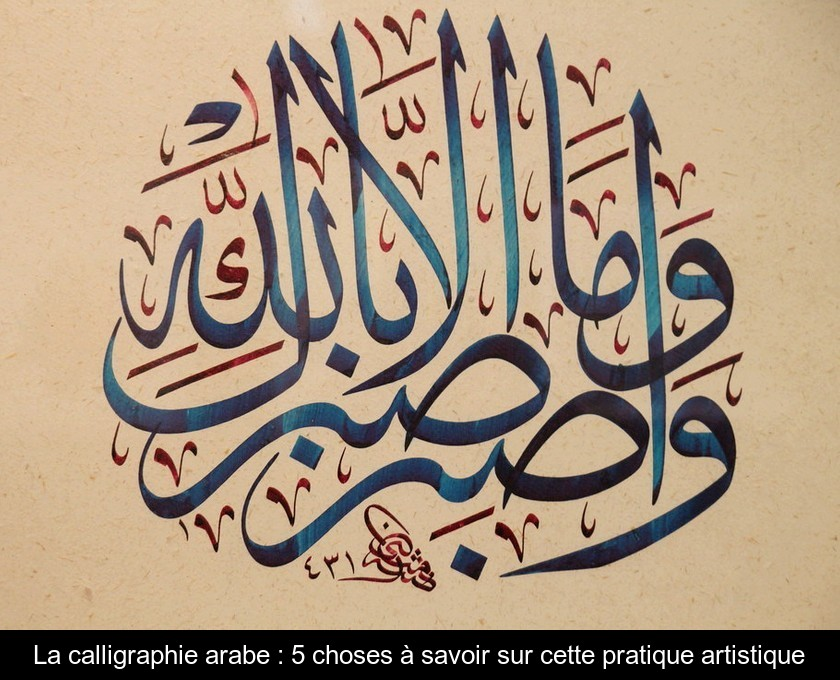 وَاصْبِرْ وَمَا صَبْرُكَ إِلَّا بِاللَّهِ
٤٣١
La calligraphie arabe : 5 choses à savoir sur cette pratique artistique